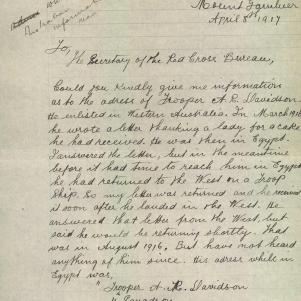 Mount Gambier
April 8th 1917
To,
The Secretary of the Red Cross Bureau,
Could you kindly give me information
as to the adress of Trooper A. R. Davidson.
He enlisted in Western Australia. In March 1916
he wrote a letter thanking a lady for a cake
he had received. He was then in Egypt.
I answered the letter, but in the meantime
before it had time to reach him in Egypt
he had returned to the West on a Troop
Ship. So my letter was returned and he received
it soon after he landed in the West. He
answered that letter from the West, but
said he would be returning shortly. That
was in August 1916. But have not heard
anything of him since. His adress while in
Egypt was,
"Trooper A. R. Davidson